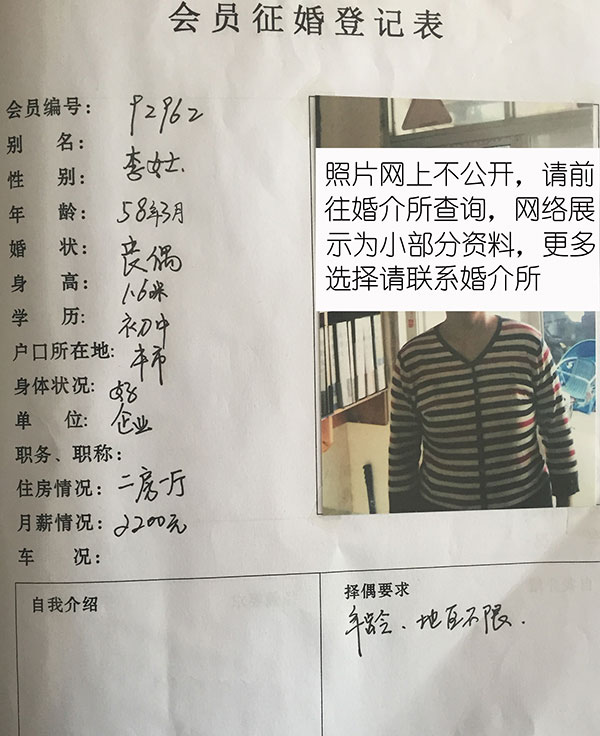 会员征婚登记表
会员编号: 92962
别 名: 李女士.
性 别:
年 龄: 58年3月
婚 状: 丧偶
身 高: 1.6米
学 历: 初中
户口所在地: 本市
身体状况: 好
单 位: 企业
职务、职称:
住房情况: 二房一厅
月薪情况: 2200元
车 况:
照片网上不公开，请前
往婚介所查询，网络展
示为小部分资料，更多
选择请联系婚介所
自我介绍
择偶要求
年龄、地区不限.